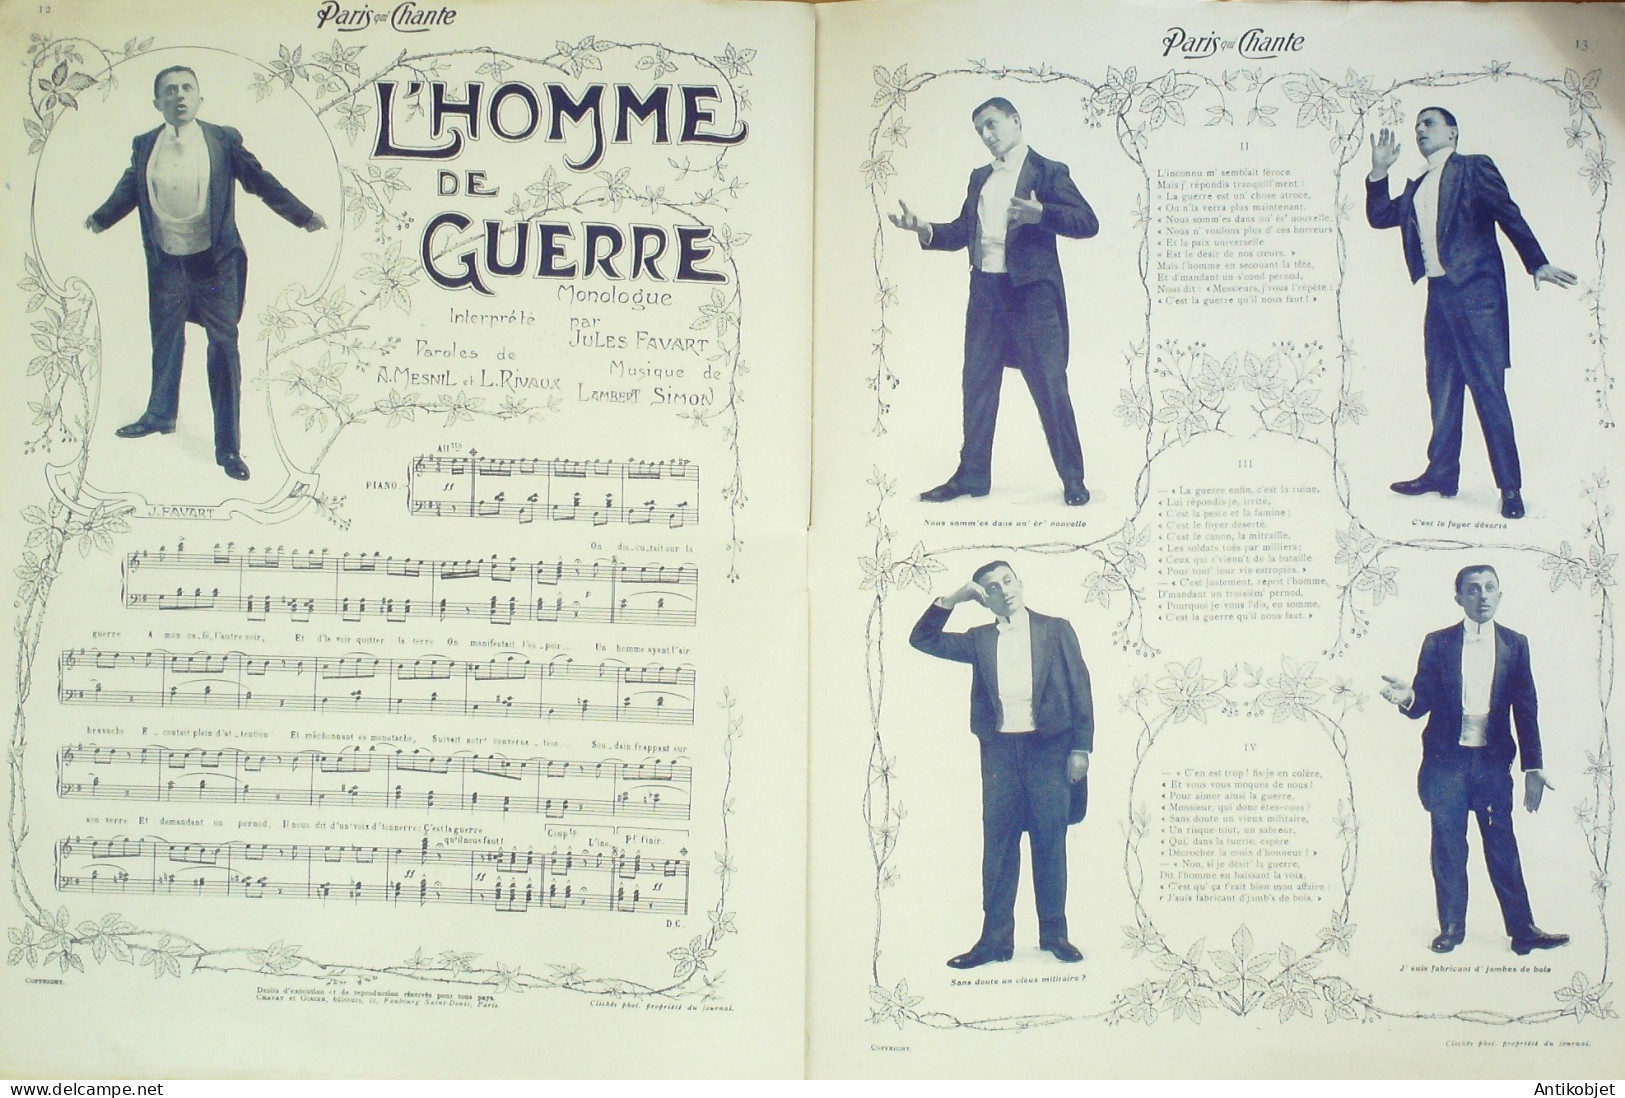 12
Paris qui Chante
L'HOMME
DE
GUERRE
Monologue
Interprété par
JULES FAVART
Paroles de
A. MESNIL et L. RIVAUX
Musique de
LAMBERT SIMON
J. FAVART
All tto
PIANO.
ff
On dis_cu_tait sur la
P
guerre A mon ca_fé, l'autre soir, Et d'la voir quitter la terre On manifestait l'es_poir... Un homme ayant l'air
bravache E_coutait plein d'at_tention Et mâchonnant sa moustache, Suivait notr' conversa_tion... Sou_dain frappant sur
son verre Et demandant un pernod, Il nous dit d'un' voix d'tonnerre: C'est la guerre
qu'il nous faut!
Coupl's
L'inc.
Pr finir.
ff
ff
ff
D.C.
COPYRIGHT.
Droits d'exécution et de reproduction réservés pour tous pays.
Clichés phot. propriété du journal.
Paris qui Chante
13
II
L'inconnu m' semblait féroce
Mais j' répondis tranquill'ment :
« La guerre est un' chose atroce,
« On n'la verra plus maintenant.
« Nous somm'es dans un' èr' nouvelle,
« Nous n' voulons plus d' ces horreurs
« Et la paix universelle
« Est le désir de nos cœurs. »
Mais l'homme en secouant la tête,
Et d'mandant un s'cond pernod,
Nous dit : « Messieurs, j'vous l'répète :
« C'est la guerre qu'il nous faut ! »
Nous somm'es dans un' èr' nouvelle
C'est le foyer déserté
III
— « La guerre enfin, c'est la ruine,
« Lui répondis-je, irrité,
« C'est la peste et la famine ;
« C'est le foyer déserté,
« C'est le canon, la mitraille,
« Les soldats tués par milliers;
« Ceux qui r'vienn't de la bataille
« Pour tout' leur vie estropiés. »
— « C'est justement, reprit l'homme,
D'mandant un troisièm' pernod,
« Pourquoi je vous l'dis, en somme,
« C'est la guerre qu'il nous faut. »
IV
— « C'en est trop ! fis-je en colère,
« Et vous vous moquez de nous !
« Pour aimer ainsi la guerre,
« Monsieur, qui donc êtes-vous ?
« Sans doute un vieux militaire,
« Un risque-tout, un sabreur,
« Qui, dans la tuerie, espère
« Décrocher la croix d'honneur ? »
— « Non, si je désir' la guerre,
Dit l'homme en baissant la voix,
« C'est qu' ça f'rait bien mon affaire :
« J'suis fabricant d'jamb's de bois. »
Sans doute un vieux militaire ?
J' suis fabricant d' jambes de bois
COPYRIGHT.
Clichés phot. propriété du journal.
Antikobjet